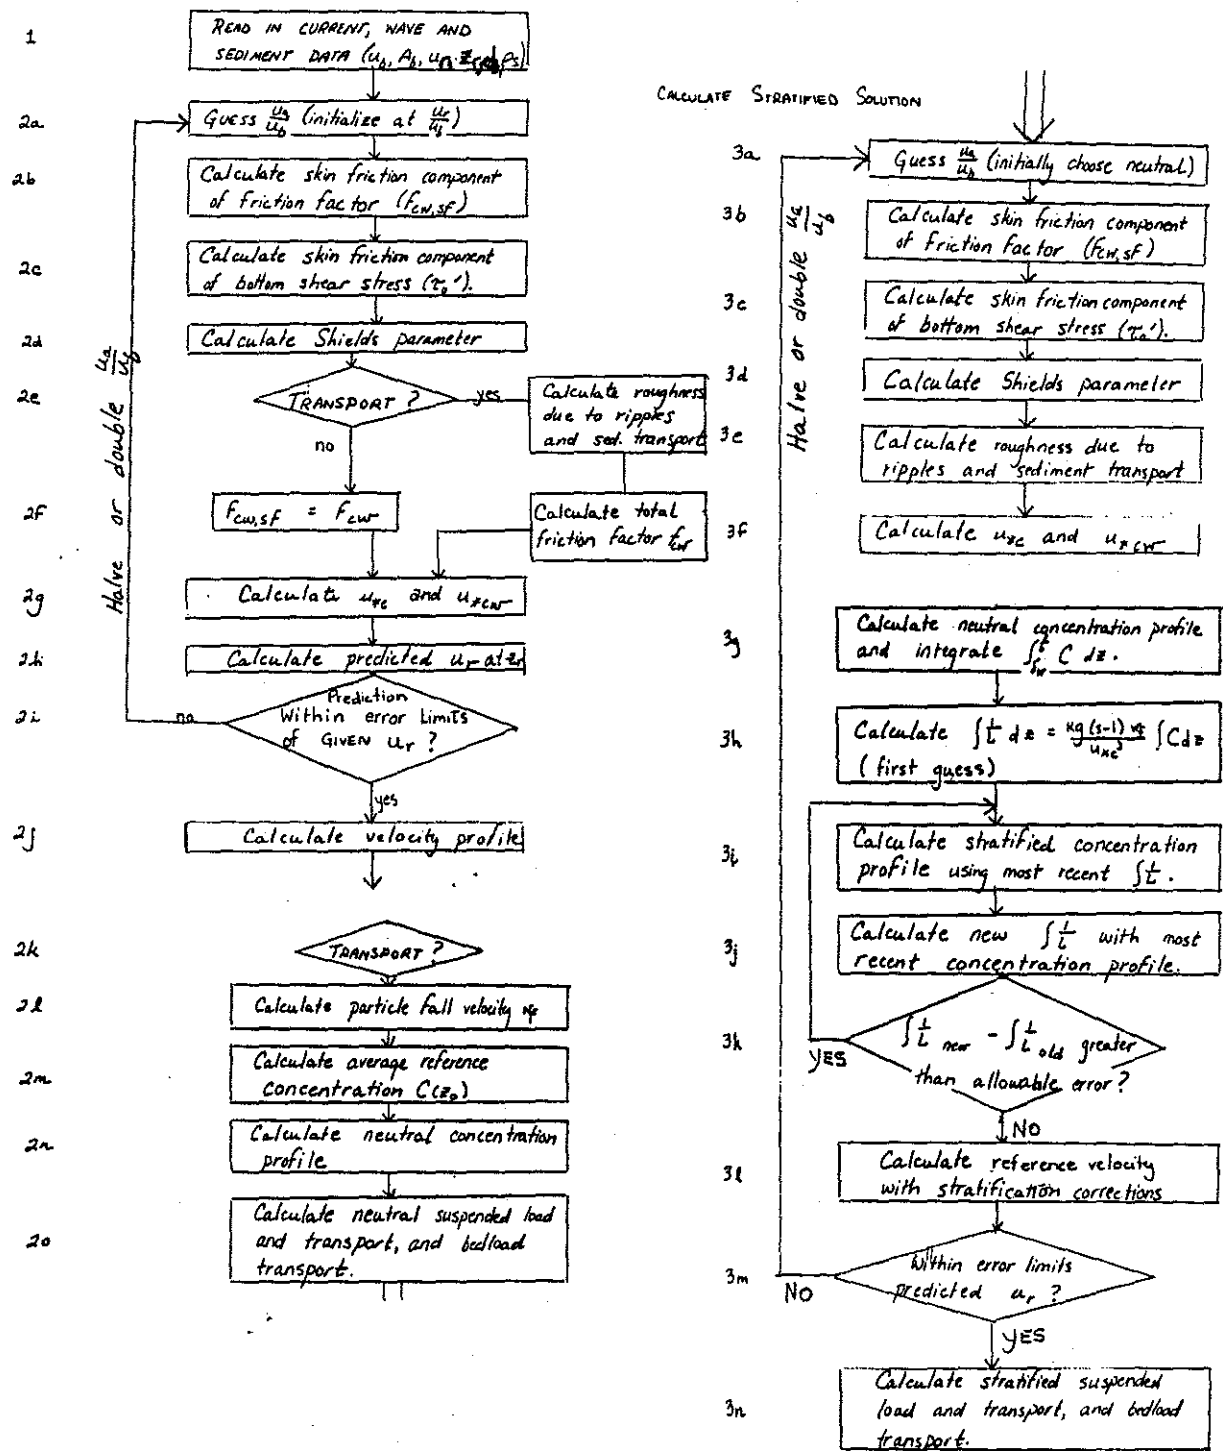 1
READ IN CURRENT, WAVE AND
SEDIMENT DATA (u_b, A_b, u_r, z_r, ρ_s)
2a
GUESS u_a/u_b (initialize at u_r/u_b)
2b
Calculate skin friction component
of friction factor (f_cw,sf)
2c
Calculate skin friction component
of bottom shear stress (τ_o').
2d
Calculate Shields parameter
2e
TRANSPORT?
yes
no
Calculate roughness
due to ripples
and sed. transport
2f
F_cw,sf = F_cw
Calculate total
friction factor f_cw
2g
Calculate u_*c and u_*cw
2h
Calculate predicted u_r at z_r
2i
Prediction
Within error limits
of GIVEN u_r ?
no
yes
Halve or double u_a/u_b
2j
Calculate velocity profile
2k
TRANSPORT?
2l
Calculate particle fall velocity w_f
2m
Calculate average reference
concentration C(z_o)
2n
Calculate neutral concentration
profile
2o
Calculate neutral suspended load
and transport, and bedload
transport.
CALCULATE STRATIFIED SOLUTION
3a
Guess u_a/u_b (initially choose neutral)
3b
Calculate skin friction component
of friction factor (f_cw,sf)
3c
Calculate skin friction component
of bottom shear stress (τ_o').
3d
Calculate Shields parameter
3e
Calculate roughness due to
ripples and sediment transport
3f
Calculate u_*c and u_*cw
Halve or double u_a/u_b
3g
Calculate neutral concentration profile
and integrate ∫ C dz.
3h
Calculate ∫ 1/L dz = κg(s-1) w_f / u_*c³ ∫ C dz
(first guess)
3i
Calculate stratified concentration
profile using most recent ∫ 1/L.
3j
Calculate new ∫ 1/L with most
recent concentration profile.
3k
∫ 1/L new - ∫ 1/L old greater
than allowable error?
YES
NO
3l
Calculate reference velocity
with stratification corrections
3m
Within error limits
predicted u_r ?
NO
YES
3n
Calculate stratified suspended
load and transport, and bedload
transport.